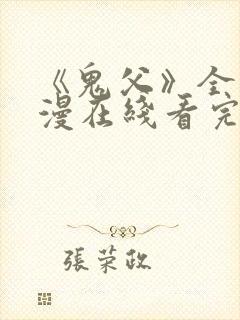 《鬼父》全
漫在綫看完
張荣政